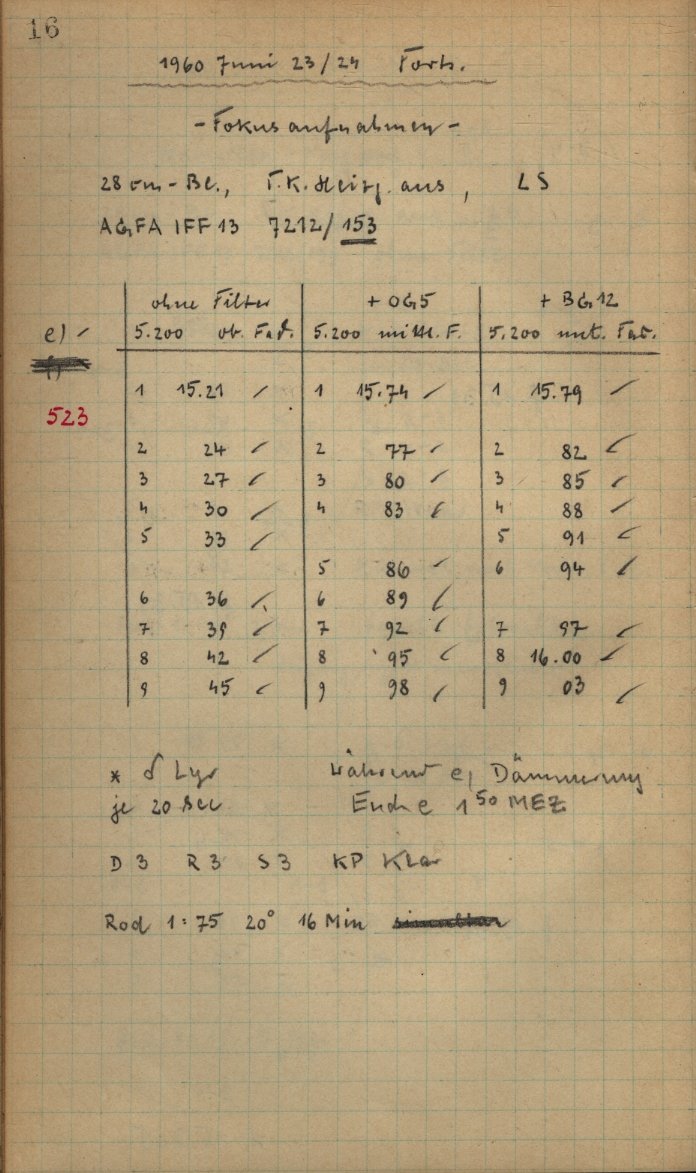 16
1960 Juni 23/24 Forts.
- Fokusaufnahmen -
28 cm - Bl., F.K. Heizg. aus, LS
AGFA IFF 13 7212/153
ohne Filter + OG5 + BG12
e) ✓ 5.200 ob. Fad. 5.200 mittl. F. 5.200 unt. Fad.
1 15.21 ✓ 1 15.74 ✓ 1 15.79 ✓
523
2 24 ✓ 2 77 ✓ 2 82 ✓
3 27 ✓ 3 80 ✓ 3 85 ✓
4 30 ✓ 4 83 ✓ 4 88 ✓
5 33 ✓ 5 91 ✓
5 86 ✓ 6 94 ✓
6 36 ✓ 6 89 ✓
7 39 ✓ 7 92 ✓ 7 97 ✓
8 42 ✓ 8 95 ✓ 8 16.00 ✓
9 45 ✓ 9 98 ✓ 9 03 ✓
* δ Lyr während e) Dämmerung
je 20 sec Ende 1 50 MEZ
D 3 R 3 S 3 KP Klar
Rod 1:75 20° 16 Min